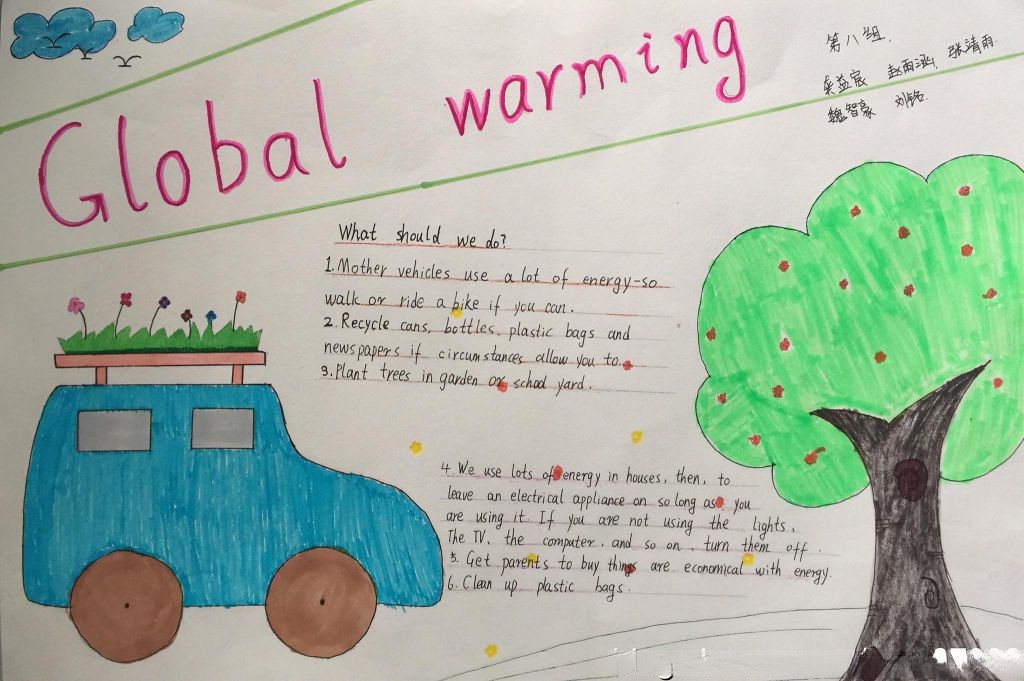 Global warming
第八组.
赵雨涵 张靖雨.
魏智豪 刘铭.
What should we do?
1. Mother vehicles use a lot of energy-so
walk or ride a bike if you can.
2. Recycle cans, bottles, plastic bags and
newspapers if circumstances allow you to.
3. Plant trees in garden or school yard.
4. We use lots of energy in houses, then, to
leave an electrical appliance on so long as you
are using it. If you are not using the lights,
The TV, the computer, and so on, turn them off.
5. Get parents to buy things are economical with energy.
6. Clean up plastic bags.